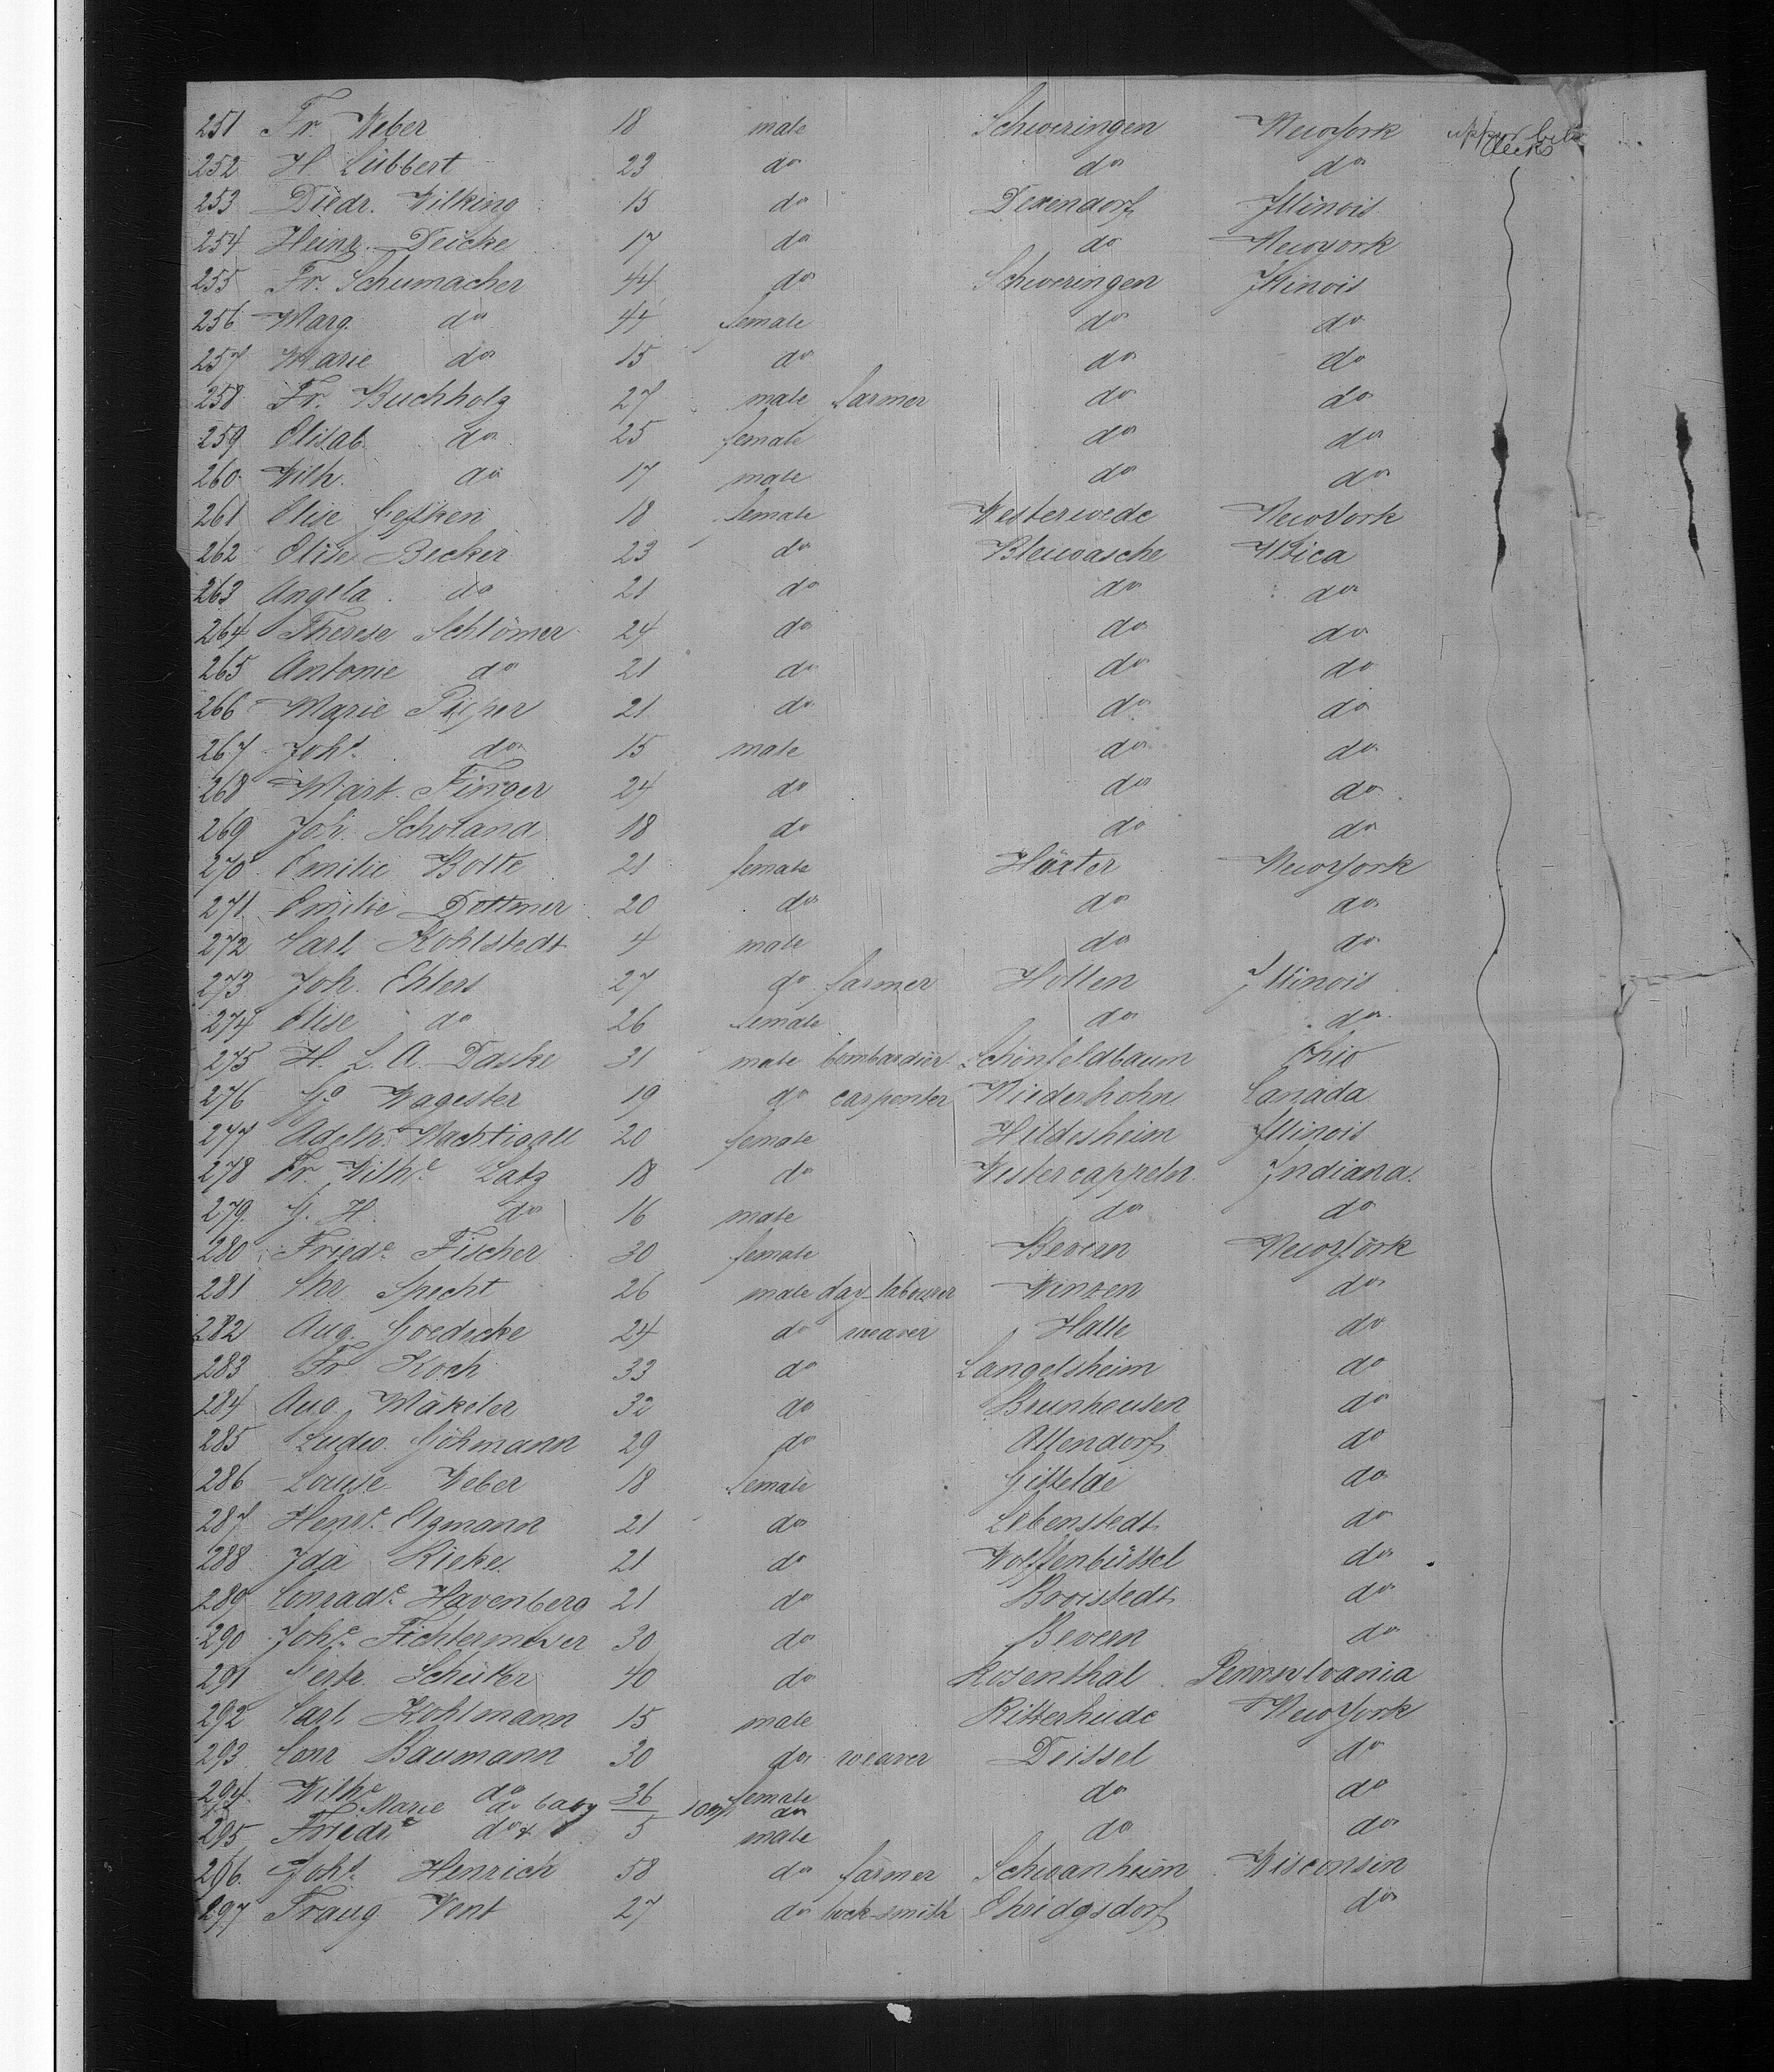 251 Fr. Weber 18 male Schweringen NewYork upper betw decks
252 H. Lübbert 23 do do do
253 Diedr. Wilking 15 do Dexendorf Illinois
254 Heinr. Deicke 17 do do Newyork
255 Fr. Schumacher 44 do Schweringen Illinois
256 Marg. do 44 female do do
257 Marie do 15 do do do
258 Fr. Buchholz 27 male farmer do do
259 Elisab. do 25 female do do
260 Wilh. do 17 male do do
261 Elise Gefken 18 female Westerwede NewYork
262 Elise Becker 23 do Bleiwasche Utica
263 Angela do 21 do do do
264 Therese Schlömer 24 do do do
265 Antonie do 21 do do do
266 Marie Pieper 21 do do do
267 Johs. do 15 male do do
268 Mart. Finger 24 do do do
269 Joh. Scholand 18 do do do
270 Emilie Bolte 21 female Höxter NewYork
271 Emilie Dettmer 20 do do do
272 Carl Kohlstedt 4 male do do
273 Joh. Ehlers 27 do farmer Holten Illinois
274 Elise do 26 female do do
275 H. L. A. Daske 31 male bombardier Schönfeldbaum Ohio
276 Go Wagester 19 do carpenter Niederhohn Canada
277 Adelh. Nachtigall 20 female Hildesheim Illinois
278 Fr. Wilhe. Latz 18 do Westercappeln Indiana
279 G. H. do 16 male do do
280 Friede Fischer 30 female Bevern NewYork
281 Chr. Specht 26 male day-labourer Winzen do
282 Aug. Goedecke 24 do weaver Halle do
283 Fr. Koch 33 do Langelsheim do
284 Aug. Mäkeler 32 do Brunhausen do
285 Ludw. Göhmann 29 do Allendorf do
286 Louise Weber 18 female Gittelde do
287 Henre. Elgmann 21 do Lebenstedt do
288 Ida Rieke 21 do Wolffenbüttel do
289 Conrade. Havenberg 21 do Broistedt do
290 Johe. Fichtermeyer 30 do Bevern do
291 Gertr. Schüler 40 do Rosenthal Pennsylvania
292 Carl Kohlmann 15 male Ritterhude NewYork
293 Conr Baumann 30 do weaver Deissel do
294 Wilhe do 36 female do do
Marie do baby 10m do
295 Friedr do 5 male do do
296. Johs. Henrich 58 do farmer Schwanheim Wisconsin
297 Traug Vent 27 do lock-smith Ehridgsdorf do